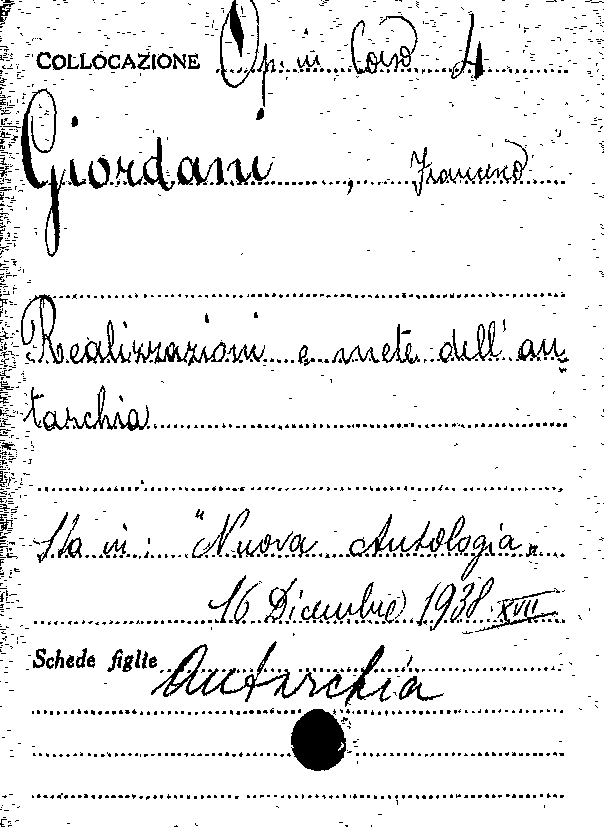 COLLOCAZIONE Op. in Corso 4
Giordani, Francesco
Realizzazioni e mete dell'au
tarchia
Sta in: "Nuova Antologia„
16 Dicembre 1938 XVII
Schede figlie Autarchia